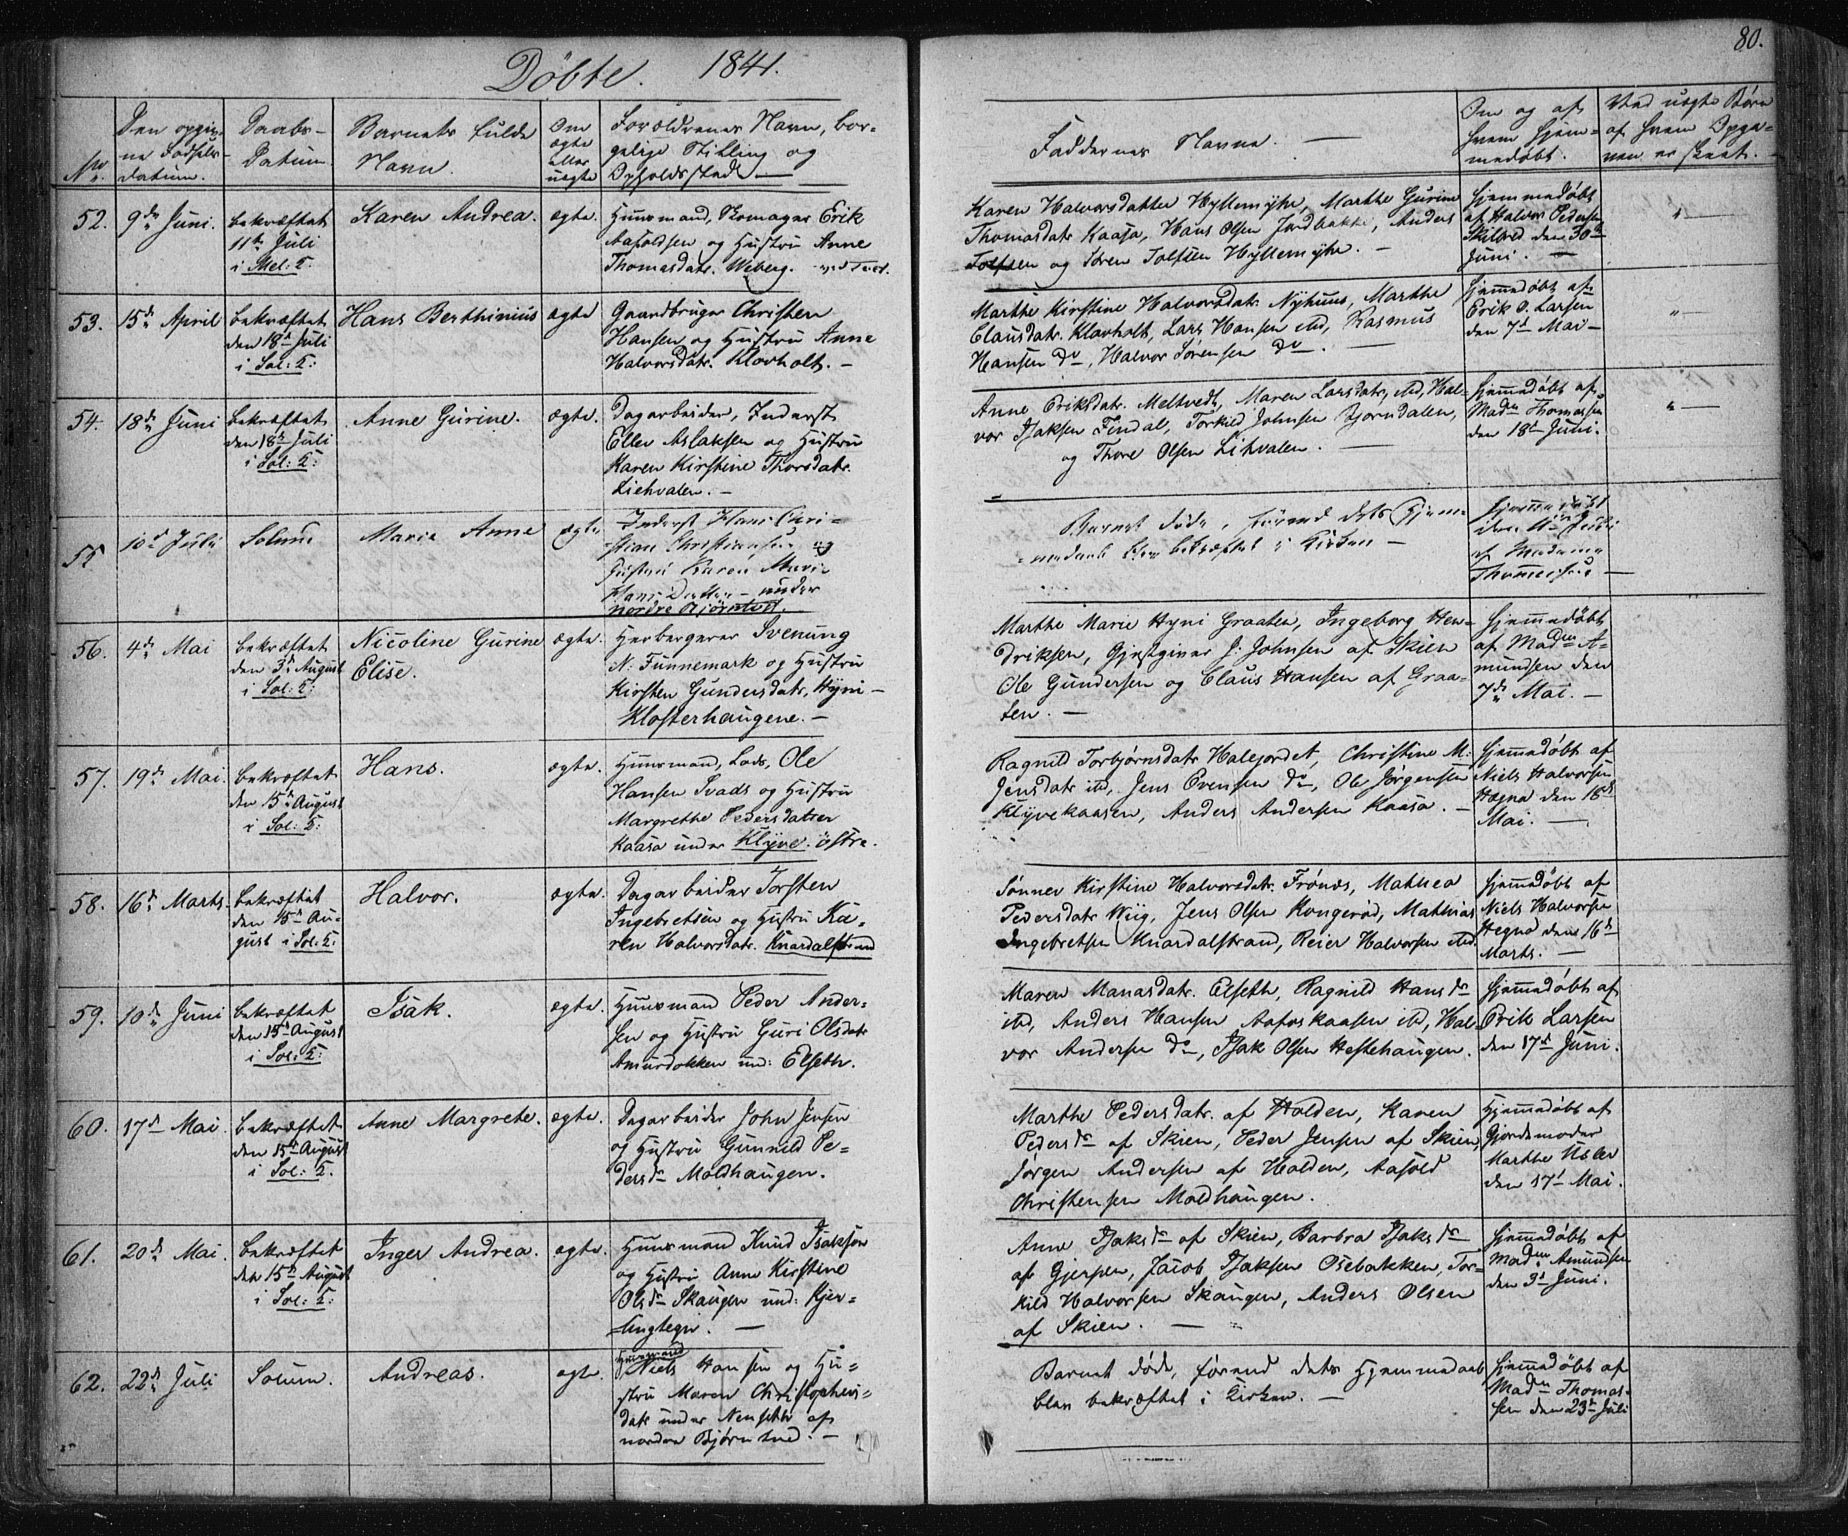 Døbte. 1841.
80.
No.
Den opgiv-
ne Fødsels-
datum.
Daabs-
Datum.
Barnets fulde
Navn.
Om
ægte
eller
uægte
Forældrenes Navn, bor-
gelige Stilling og
Opholdssted.
Faddernes Navne. —
Om og af
hvem hjem-
medøbt.
Ved uægte Børn
af hvem Opga-
ven er skeet.
52. 9de Juni.
bekræftet
11te Juli
i Mel: K.
Karen Andrea.
ægte.
Huusmand, Erik
Aasoldsen og Hustru Anne
Thomasdatr. Weberg.
Karen Halvorsdatter Hyllemyhr, Marthe Gurine
Thomasdatr Kaasa, Hans Olsen Jordbakke, Anders
Tolfsen og Søren Tolfsen Hyllemyhr. —
Hjemmedøbt
af Halvor Pedersen
Skilbred den 30te
Juni. —
" —
53. 15de April
bekræftet
den 18de Juli
i Sol: K.
Hans Berthinius
ægte
Gaardbruger Christen
Hansen og Hustru Anne
Halvorsdatr. Klovholt. —
Marthe Kirstine Halvorsdatr. Nyhuus, Marthe
Clausdatr. Klovholt, Lars Hansen ibd, Rasmus
Hansen do, Halvor Sørensen do. —
Hjemmedøbt af
Erik O. Larsen
den 7de Mai —
" —
54. 18de Juni
bekræftet
den 18de Juli
i Sol: K:
Anne Gurine.
ægte.
Dagarbeider, Inderst
Ellev Aslaksen og Hustru
Karen Kirstine Thorsdatr.
Liehvalen. —
Anne Eriksdatr. Meltvedt, Maren Larsdatr, ibd, Hal-
vor Isaksen Findal, Torkild Johnsen Bjorndalen,
og Thore Olsen Lihvalen. —
Hjemmedøbt af
Madm Thomassen
den 18de Juni.
" —
55 10de Juli
Solum
Marie Anne
ægte
Inderst Hans Chri-
stian Christiansen og
Hustru Karen Marie
Hans Datter — under
nordre Bjørntvet.
Barnet døde, førend dets Hjem-
medaab blev bekræftet i Kirken —
Hjemmedøbt
den 11te Juli
af Madame
Thomassen —
56. 4de Mai
bekræftet
den 3de August
i Sol: K:
Nicoline Gurine
Elise.
ægte.
Herbergerer Svenung
N: Funnemark og Hustru
Kirsten Gundersdatr, Hyni —
Klosterhaugene. —
Marthe Marie Hyni Graaten, Ingeborg Hen-
driksen, Gjestgiver J. Johnsen af Skien
Ole Gundersen og Claus Hansen af Graa-
ten. —
Hjemmedøbt
af Madm A-
mundsen den
7de Mai. —
57. 19de Mai.
bekræftet
den 15de August
i Sol: K:
Hans.
ægte.
Huusmand, Lods, Ole
Hansen Svads og Hustru
Margrethe Pedersdatter
Kaasa under Klyve østre.
Ragnild Torbjørnsdatr Halejordet, Christine M.
Jensdatr ibd, Jens Evensen do, Ole Jørgensen
Klyvekaasen, Anders Andersen Kaasa. —
Hjemmedøbt af
Niels Halvorsen
Hægna den 18de
Mai. —
58. 16de Marts.
bekræftet
den 15de Au-
gust i Sol: K:
Halvor.
ægte.
Dagarbeider Torsten
Ingebretsen og Hustru Ka-
ren Halvorsdatr. Knardalstrand
Sønner Kirstine Halvorsdatr. Frønes, Mathea
Pedersdatr Wiig, Jens Olsen Kongerød, Mathias
Ingebretsen Knardalstrand, Reier Halvorsen ibd.
Hjemmedøbt af
Niels Halvorsen
Hegna den 16de
Marts. —
59. 10de Juni
bekræftet
den 15de August
i Sol: K:
Isak.
ægte.
Huusmand Peder Ander-
sen og Hustru Guri Olsdatr
Amundokken und: Elseth.
Maren Manasdatr. Elseth, Ragnild Hansdr
ibd, Anders Hansen Aafoskaasen ibd, Hal-
vor Andersen do, Isak Olsen Hestehaugen.
Hjemmedøbt af
Erik Larsen
den 17de Juni.
60. 17de Mai.
bekræftet
den 15de August
i Sol: K.
Anne Margrete.
ægte.
Dagarbeider John Jensen
og Hustru Gunnild Pe-
dersdr Moldhaugen.
Marthe Pedersdatr. af Holden, Karen
Pedersdr af Skien, Peder Jensen af Skien,
Jørgen Andersen af Holden, Aasold
Christensen Moldhaugen.
Hjemmedøbt af
Gjordemoder
Marthe
den 17de Mai.
61. 20de Mai.
bekræftet
den 15de August
i Sol: K:
Inger Andrea.
ægte.
Huusmand Knud Isaksøn
og Hustru Anne Kirstine
Olsdr Skaugen und: Kjer-
lingtegn. —
Anne Isaksdr af Skien, Barbra Isaksdr
af Gjerpen, Jacob Isaksen Osebakken, Tor-
kild Halvorsen Skaugen, Anders Olsen
af Skien. —
Hjemmedøbt af
Madm. Amundsen
den 3de Juni.
62. 22de Juli
Solum.
Andreas.
ægte.
Huusmand
Niels Hansen og Hu-
stru Maren Christophers-
datr under Nensett af
nordre Bjørntved. —
Barnet døde, førend dets Hjemmedaab
blev bekræftet i Kirken. —
Hjemmedøbt af
Madm Thomas-
sen den 23de Juli